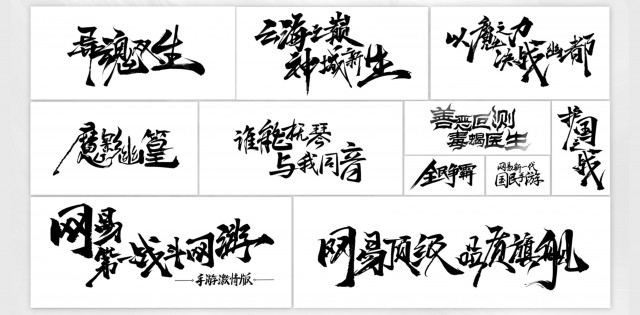 寻魂双生
云海之巅
神域新生
以魔之力
决战幽都
魔影幽篁
谁能抚琴
与我同音
善恶叵测
毒蝎医生
护国之战
全民争霸
网易新一代
国民手游
网易
第一战斗网游
手游激情版
网易顶级品质旗舰